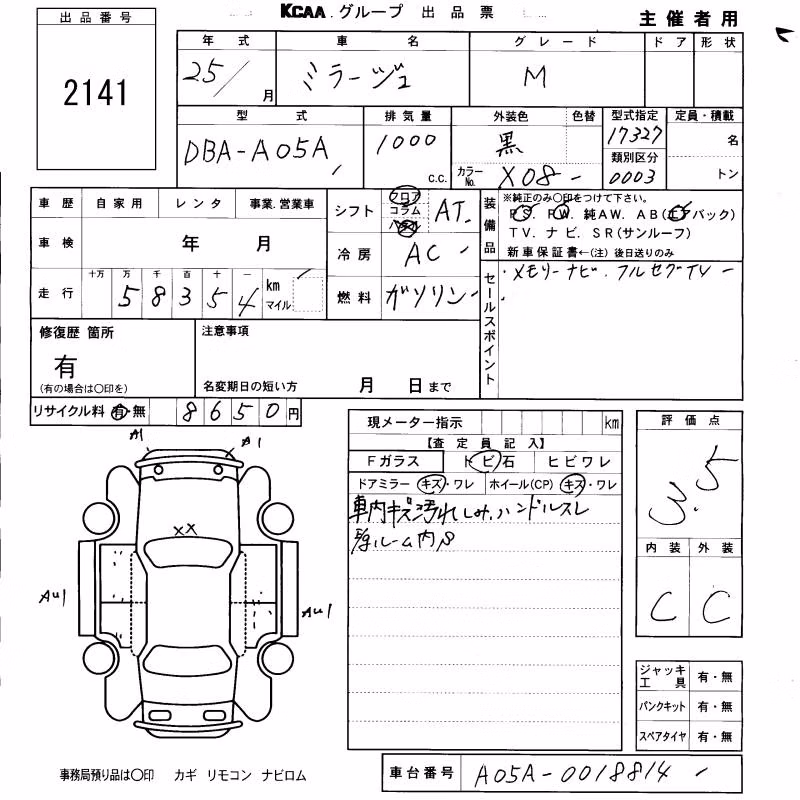 KCAA. グループ 出品票
主催者用
出品番号
2141
年式 車名 グレード ドア 形状
25/ 月 ミラージュ M
型式 排気量 外装色 色替 型式指定 定員・積載
DBA-A05A 1000 c.c. 黒 17327 名
カラーNo. X08 類別区分 0003 トン
車歴 自家用 レンタ 事業.営業車
車検 年 月
走行 十万 万 千 百 十 一
5 8 3 5 4 km マイル
シフト フロア コラム パネル AT
冷房 AC
燃料 ガソリン
装備品 ※純正のみ〇印をつけて下さい。
P.S. P.W. 純AW. AB(エアバック)
TV. ナビ. SR(サンルーフ)
新車保証書←(注) 後日送りのみ
セールスポイント
・メモリーナビ. フルセグTV
修復歴 箇所 注意事項
有
(有の場合は〇印を) 名変期日の短い方 月 日まで
リサイクル料 有・無 8650円
現メーター指示 km
【査定員記入】
Fガラス トビ石 ヒビワレ
ドアミラー キズ・ワレ ホイール(CP) キズ・ワレ
車内キズ汚れしみ.ハンドルスレ
ルーム内
評価点
3.5
内装 外装
C C
A1 A1
XX
AU1 AU1
ジャッキ工具 有・無
パンクキット 有・無
スペアタイヤ 有・無
事務局預り品は〇印 カギ リモコン ナビロム
車台番号 A05A-0018814